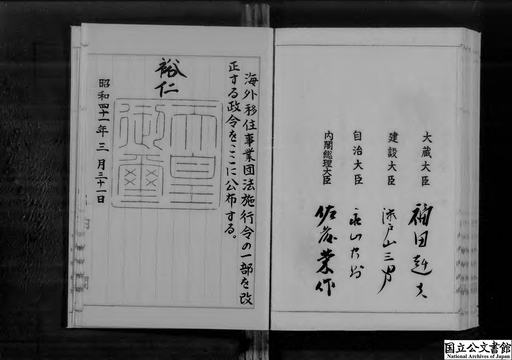 大蔵大臣 福田赳夫
建設大臣 瀬戸山三男
自治大臣 永山忠則
内閣総理大臣 佐藤栄作
海外移住事業団法施行令の一部を改
正する政令をここに公布する。
裕仁
天皇
御璽
昭和四十一年三月三十一日
国立公文書館
National Archives of Japan